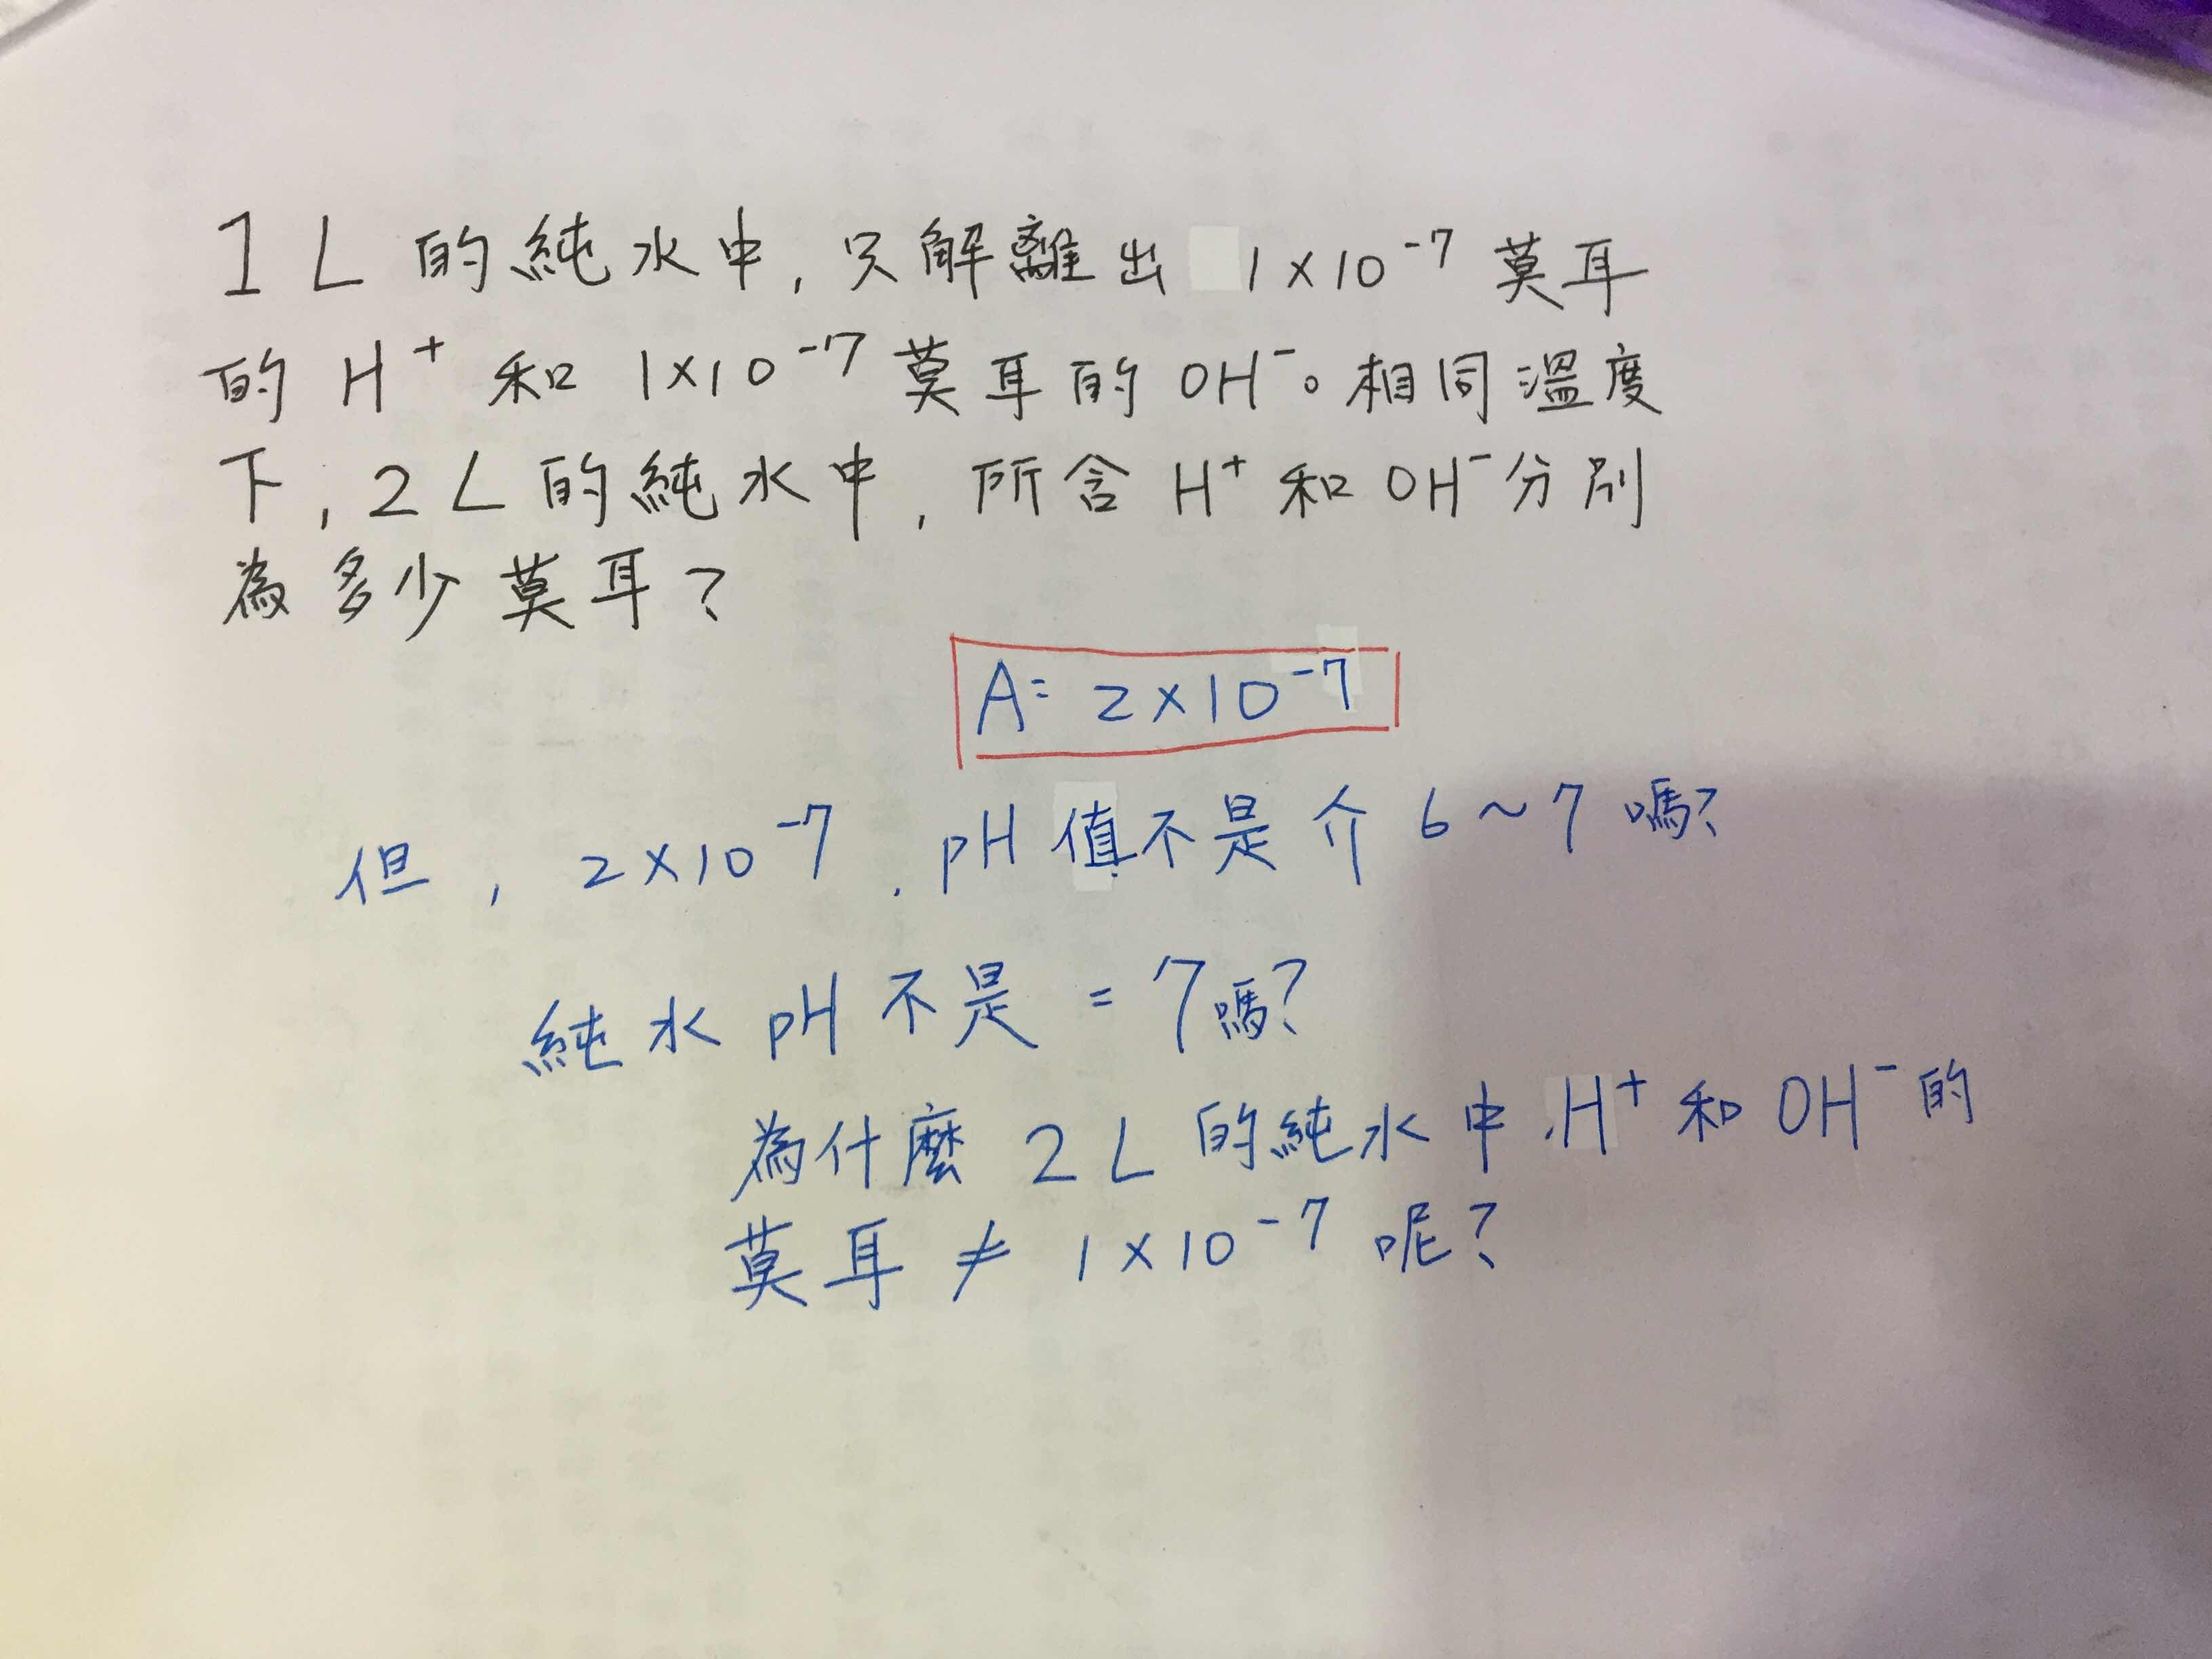 1 L 的純水中, 只解離出 1×10⁻⁷ 莫耳
的 H⁺ 和 1×10⁻⁷ 莫耳的 OH⁻。相同溫度
下, 2 L 的純水中, 所含 H⁺ 和 OH⁻ 分別
為多少莫耳?
A= 2×10⁻⁷
但, 2×10⁻⁷, pH 值不是介 6~7 嗎?
純水 pH 不是 = 7 嗎?
為什麼 2 L 的純水中, H⁺ 和 OH⁻ 的
莫耳 ≠ 1×10⁻⁷ 呢?